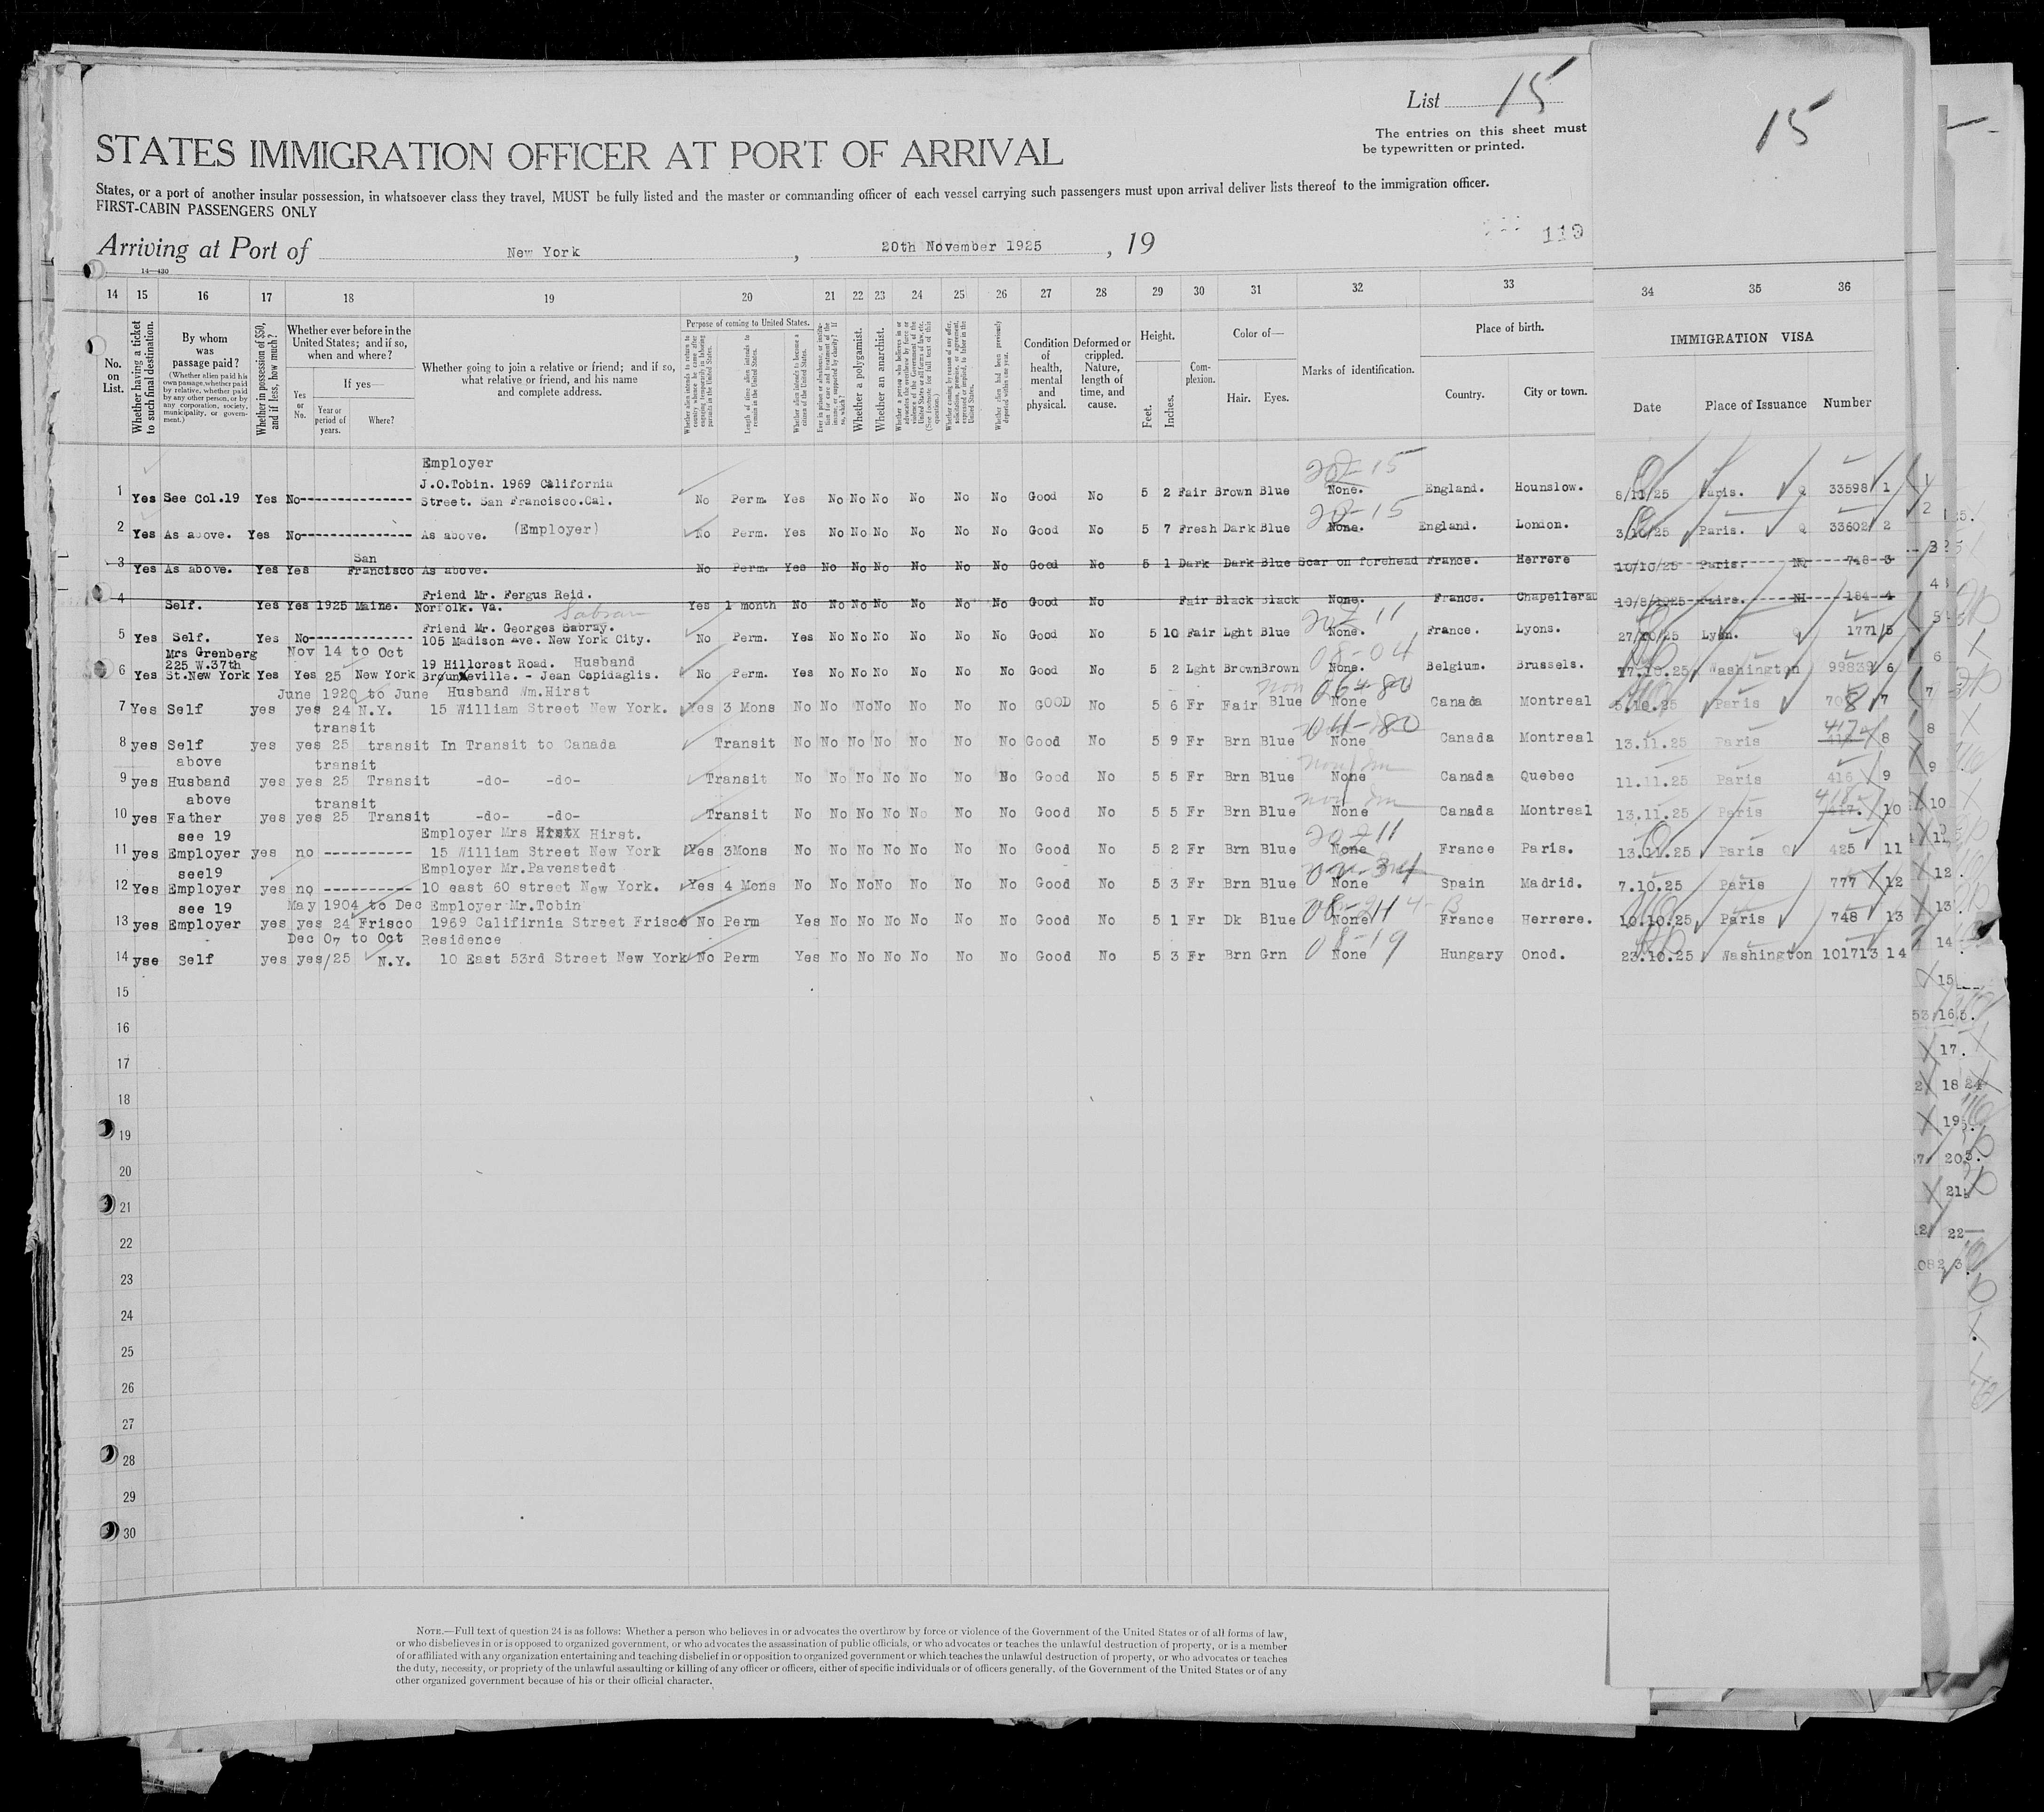 List 15
15
The entries on this sheet must
be typewritten or printed.
STATES IMMIGRATION OFFICER AT PORT OF ARRIVAL
States, or a port of another insular possession, in whatsoever class they travel, MUST be fully listed and the master or commanding officer of each vessel carrying such passengers must upon arrival deliver lists thereof to the immigration officer.
FIRST-CABIN PASSENGERS ONLY
119
Arriving at Port of New York, 20th November 1925, 19
14—430
14 15 16 17 18 19 20 21 22 23 24 25 26 27 28 29 30 31 32 33 34 35 36
No. on List.
Whether having a ticket to such final destination.
By whom was passage paid?
(Whether alien paid his own passage, whether paid by relative, whether paid by any other person, or by any corporation, society, municipality, or government.)
Whether in possession of $50, and if less, how much?
Whether ever before in the United States; and if so, when and where?
Yes or No.
If yes—
Year or period of years.
Where?
Whether going to join a relative or friend; and if so, what relative or friend, and his name and complete address.
Purpose of coming to United States.
Length of time alien intends to remain in the United States.
Whether alien intends to become a citizen of the United States.
Whether a polygamist.
Whether an anarchist.
Condition of health, mental and physical.
Deformed or crippled. Nature, length of time, and cause.
Height.
Feet.
Inches.
Complexion.
Color of—
Hair.
Eyes.
Marks of identification.
Place of birth.
Country.
City or town.
IMMIGRATION VISA
Date
Place of Issuance
Number
Employer
J.O.Tobin. 1969 California
20-15
1 Yes See Col.19 Yes No--------------- Street. San Francisco.Cal. No Perm. Yes No No No No No No Good No 5 2 Fair Brown Blue None. England. Hounslow. 8/11/25 Paris. Q 33598 1
20-15
2 Yes As above. Yes No--------------- As above. (Employer) No Perm. Yes No No No No No No Good No 5 7 Fresh Dark Blue None. England. London. 3/10/25 Paris. Q 33602 2
San
3 Yes As above. Yes Yes Francisco As above. No Perm. Yes No No No No No No Good No 5 1 Dark Dark Blue Scar on forehead France. Herrere 10/10/25 Paris. NQ 748 3
Friend Mr. Fergus Reid.
4 Self. Yes Yes 1925 Maine. Norfolk. Va. Yes 1 month No No No No No No No Good No Fair Black Black None. France. Chapellerau 10/8/1925 Pairs. NI 184 4
Sabran
Friend Mr. Georges Sabray.
5 Yes Self. Yes No-------------- 105 Madison Ave. New York City. No Perm. Yes No No No No No No Good No 5 10 Fair Lght Blue None. France. Lyons. 27/10/25 Lyon. Q 1771 5
Mrs Grenberg Nov 14 to Oct
225 W.37th 19 Hillcrest Road. Husband
08-04
6 Yes St.New York Yes Yes 25 New York Brunxeville. - Jean Capidaglis. No Perm. Yes No No No No No No Good No 5 2 Lght Brown Brown None. Belgium. Brussels. 17.10.25 Washington 99839 6
June 1920 to June Husband Wm.Hirst
7 Yes Self yes yes 24 N.Y. 15 William Street New York. Yes 3 Mons No No No No No No No GOOD No 5 6 Fr Fair Blue None Canada Montreal 5.10.25 Paris 7
transit
8 yes Self yes yes 25 transit In Transit to Canada Transit No No No No No No No Good No 5 9 Fr Brn Blue None Canada Montreal 13.11.25 Paris 417 8
above transit
9 yes Husband yes yes 25 Transit -do- -do- Transit No No No No No No No Good No 5 5 Fr Brn Blue None Canada Quebec 11.11.25 Paris 416 9
above transit
10 yes Father yes yes 25 Transit -do- -do- Transit No No No No No No No Good No 5 5 Fr Brn Blue None Canada Montreal 13.11.25 Paris 417. 10
see 19 Employer Mrs Hirst.
11 yes Employer yes no ---------- 15 William Street New York Yes 3Mons No No No No No No No Good No 5 2 Fr Brn Blue None France Paris. 13.11.25 Paris Q 425 11
see19 Employer Mr.Pavenstedt
12 Yes Employer yes no ---------- 10 east 60 street New York. Yes 4 Mons No No No No No No No Good No 5 3 Fr Brn Blue None Spain Madrid. 7.10.25 Paris 777 12
see 19 May 1904 to Dec Employer Mr.Tobin
13 yes Employer yes yes 24 Frisco 1969 Califirnia Street Frisco No Perm Yes No No No No No No Good No 5 1 Fr Dk Blue None France Herrere. 10.10.25 Paris 748 13
Dec 07 to Oct Residence
08-19
14 yse Self yes yes/25 N.Y. 10 East 53rd Street New York No Perm Yes No No No No No No Good No 5 3 Fr Brn Grn None Hungary Onod. 23.10.25 Washington 101713 14
15
16
17
18
19
20
21
22
23
24
25
26
27
28
29
30
NOTE.—Full text of question 24 is as follows: Whether a person who believes in or advocates the overthrow by force or violence of the Government of the United States or of all forms of law,
or who disbelieves in or is opposed to organized government, or who advocates the assassination of public officials, or who advocates or teaches the unlawful destruction of property, or is a member
of or affiliated with any organization entertaining and teaching disbelief in or opposition to organized government or which teaches the unlawful destruction of property, or who advocates or teaches
the duty, necessity, or propriety of the unlawful assaulting or killing of any officer or officers, either of specific individuals or of officers generally, of the Government of the United States or of any
other organized government because of his or their official character.